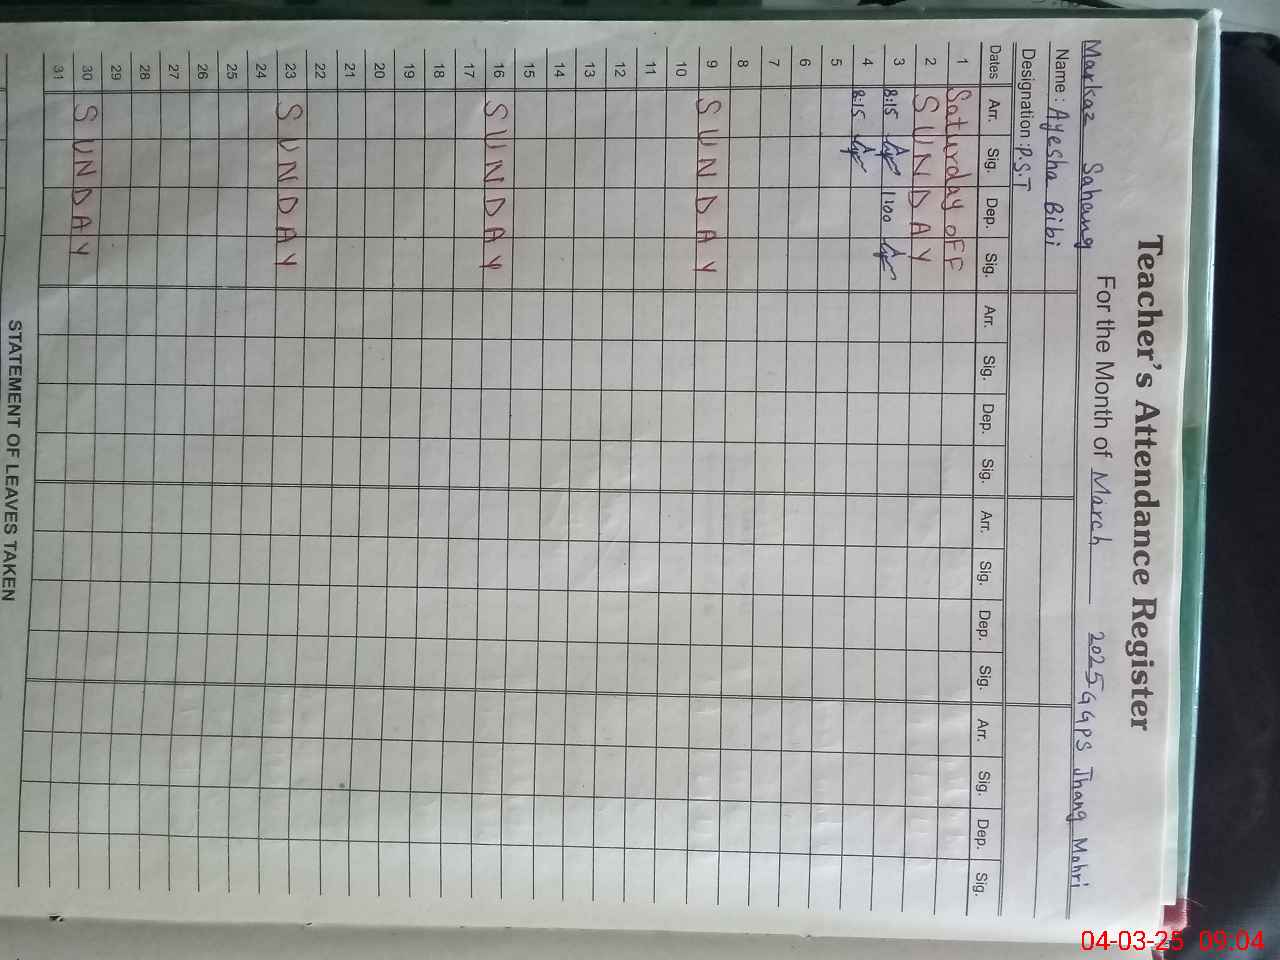 Teacher's Attendance Register
Markaz Sahang For the Month of March 2025 GGPS Jhang Mohri
Name : Ayesha Bibi
Designation : P.S.T
Dates Arr. Sig. Dep. Sig. Arr. Sig. Dep. Sig. Arr. Sig. Dep. Sig. Arr. Sig. Dep. Sig.
1 Saturday OFF
2 SUNDAY
3 8:15 1:00
4 8:15
5
6
7
8
9 SUNDAY
10
11
12
13
14
15
16 SUNDAY
17
18
19
20
21
22
23 SUNDAY
24
25
26
27
28
29
30 SUNDAY
31
STATEMENT OF LEAVES TAKEN
04-03-25 09:04